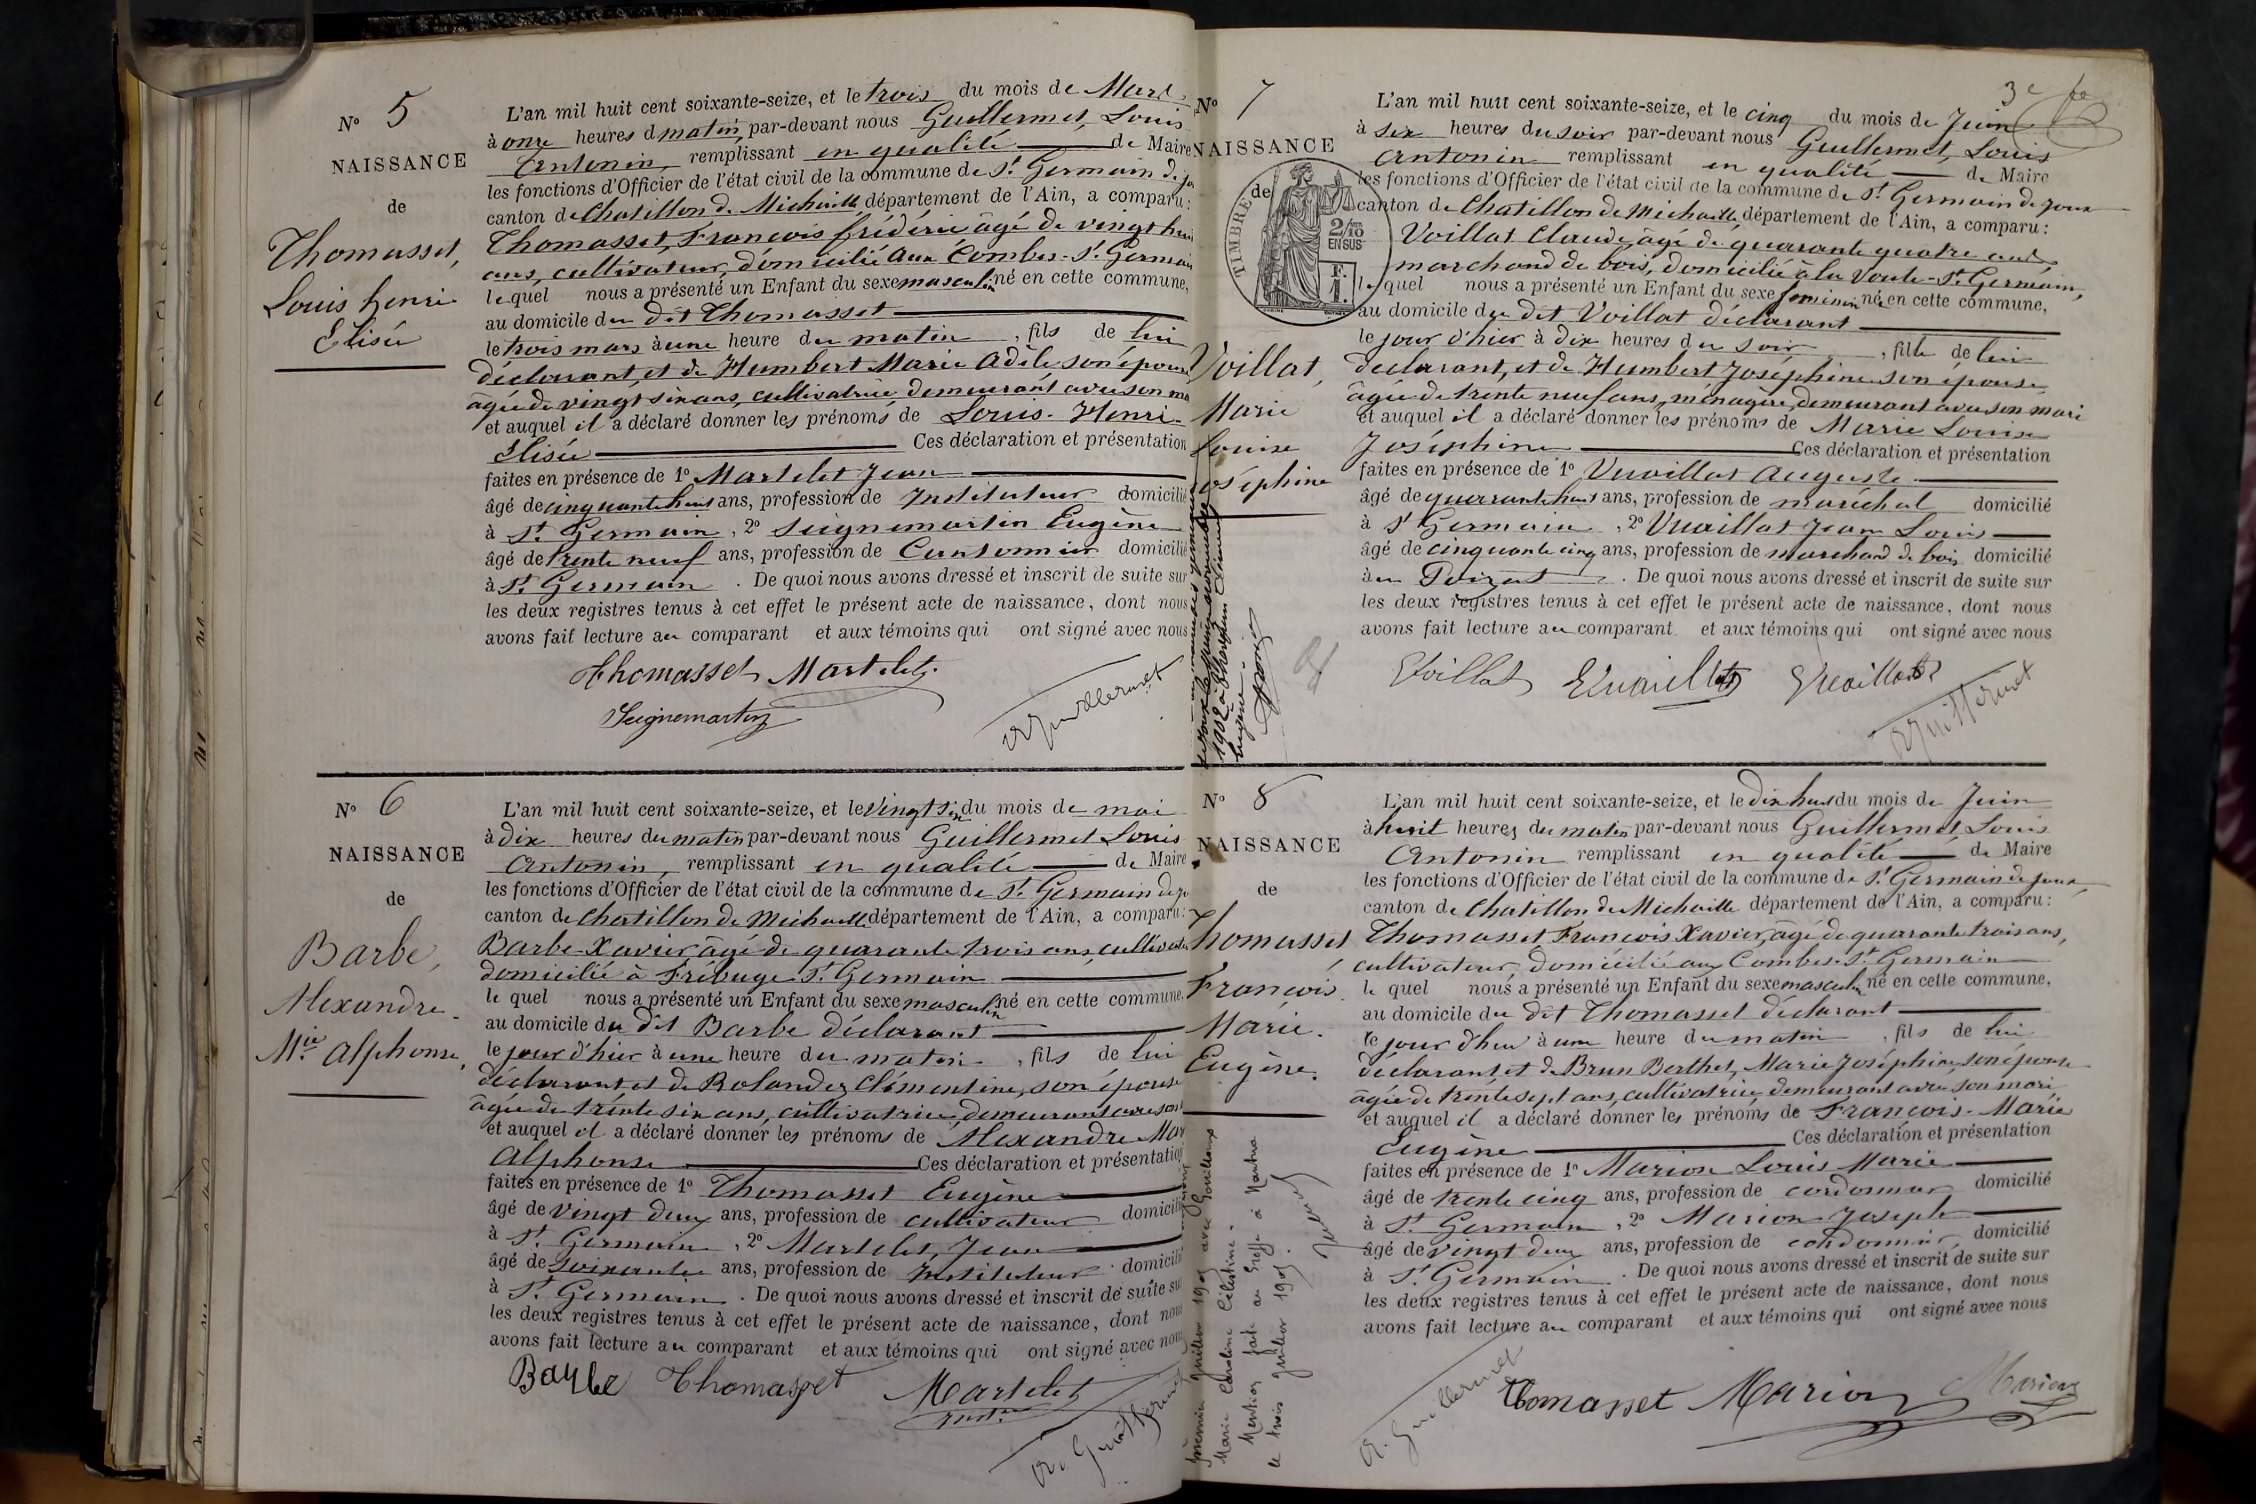 Nº 5
NAISSANCE
de
Thomasset,
Louis henri
Elisée
L'an mil huit cent soixante-seize, et le trois du mois de Mars
à onze heures d matin, par-devant nous Guillermet, Louis
Antonin, remplissant en qualité de Maire
les fonctions d'Officier de l'état civil de la commune de St Germain de jo
canton de Chatillon de Michaille département de l'Ain, a comparu :
Thomasset, François frédéric âgé de vingt huit
ans, cultivateur, domicilié aux Combes-St Germain
lequel nous a présenté un Enfant du sexe masculin né en cette commune,
au domicile du dit Thomasset
le trois mars à une heure du matin, fils de lui
déclarant, et de Humbert Marie Adèle son épouse
âgée de vingt six ans, cultivatrice demeurant avec son ma
et auquel il a déclaré donner les prénoms de Louis-Henri-
Elisée Ces déclaration et présentation
faites en présence de 1º Martelet Jean
âgé de cinquante huit ans, profession de Instituteur domicilié
à St Germain, 2º Seignemartin Eugène
âgé de trente neuf ans, profession de Cantonnier domicilié
à St Germain. De quoi nous avons dressé et inscrit de suite sur
les deux registres tenus à cet effet le présent acte de naissance, dont nous
avons fait lecture au comparant et aux témoins qui ont signé avec nous
Thomasset Martelet
Seignemartin
A Guillermet
Nº 6
NAISSANCE
de
Barbe,
Alexandre
Mie Alphonse,
L'an mil huit cent soixante-seize, et le vingt six du mois de mai
à dix heures du matin par-devant nous Guillermet Louis
Antonin, remplissant en qualité de Maire
les fonctions d'Officier de l'état civil de la commune de St Germain de jo
canton de Chatillon de Michaille département de l'Ain, a comparu :
Barbe Xavier, âgé de quarante trois ans, cultivateur
domicilié à Frébuge St Germain
le quel nous a présenté un Enfant du sexe masculin né en cette commune,
au domicile du dit Barbe déclarant
le jour d'hier à une heure du matin, fils de lui
déclarant et de Rolandez Clémentine, son épouse
âgée de trente six ans, cultivatrice, demeurant avec son
et auquel il a déclaré donner les prénoms de Alexandre Mar
Alphonse Ces déclaration et présentation
faites en présence de 1º Thomasset Eugène
âgé de vingt deux ans, profession de cultivateur domicilié
à St Germain, 2º Martelet, Jean
âgé de soixante ans, profession de Instituteur domicilié
à St Germain. De quoi nous avons dressé et inscrit de suite sur
les deux registres tenus à cet effet le présent acte de naissance, dont nous
avons fait lecture au comparant et aux témoins qui ont signé avec nous
Barbe Thomasset Martelet
A. Guillermet
3e fe
Nº 7
NAISSANCE
de
TIMBRE
2/10
EN SUS
F.
1.
Voillat,
Marie
Louise
Joséphine
L'an mil huit cent soixante-seize, et le cinq du mois de Juin
à six heures du soir par-devant nous Guillermet, Louis
Antonin remplissant en qualité de Maire
les fonctions d'Officier de l'état civil de la commune de St Germain de joux
canton de Chatillon de Michaille département de l'Ain, a comparu :
Voillat Claude, âgé de quarante quatre ans
marchand de bois, domicilié à la Voute-St Germain,
lequel nous a présenté un Enfant du sexe féminin née en cette commune,
au domicile du dit Voillat déclarant
le jour d'hier à dix heures du soir, fille de lui
déclarant, et de Humbert Joséphine son épouse,
âgée de trente neuf ans, ménagère, demeurant avec son mari
et auquel il a déclaré donner les prénoms de Marie Louise
Joséphine Ces déclaration et présentation
faites en présence de 1º Vuaillat Auguste
âgé de quarante huit ans, profession de maréchal domicilié
à St Germain, 2º Vuaillat Jean Louis
âgé de cinquante cinq ans, profession de marchand de bois domicilié
à au Poizat. De quoi nous avons dressé et inscrit de suite sur
les deux registres tenus à cet effet le présent acte de naissance, dont nous
avons fait lecture au comparant et aux témoins qui ont signé avec nous
Voillat Vuaillat Vuaillat
A Guillermet
Nº 8
NAISSANCE
de
Thomasset
François
Marie
Eugène.
L'an mil huit cent soixante-seize, et le dix huit du mois de Juin
à huit heures du matin par-devant nous Guillermet Louis
Antonin remplissant en qualité de Maire
les fonctions d'Officier de l'état civil de la commune de St Germain de joux,
canton de Chatillon de Michaille département de l'Ain, a comparu :
Thomasset François Xavier, âgé de quarante trois ans,
cultivateur, domicilié aux Combes-St Germain
le quel nous a présenté un Enfant du sexe masculin né en cette commune,
au domicile du dit Thomasset déclarant
le jour d'hier à une heure du matin, fils de lui
déclarant et de Brun Berthet, Marie Joséphine, son épouse
âgée de trente sept ans, cultivatrice demeurant avec son mari
et auquel il a déclaré donner les prénoms de François-Marie
Eugène Ces déclaration et présentation
faites en présence de 1º Marion Louis Marie
âgé de trente cinq ans, profession de cordonnier domicilié
à St Germain, 2º Marion Joseph
âgé de vingt deux ans, profession de cordonnier domicilié
à St Germain. De quoi nous avons dressé et inscrit de suite sur
les deux registres tenus à cet effet le présent acte de naissance, dont nous
avons fait lecture au comparant et aux témoins qui ont signé avec nous
A. Guillermet Thomasset Marion Marion
Marie Caroline Célestine
Mention faite au Greffe à Nantua
le trois juillet